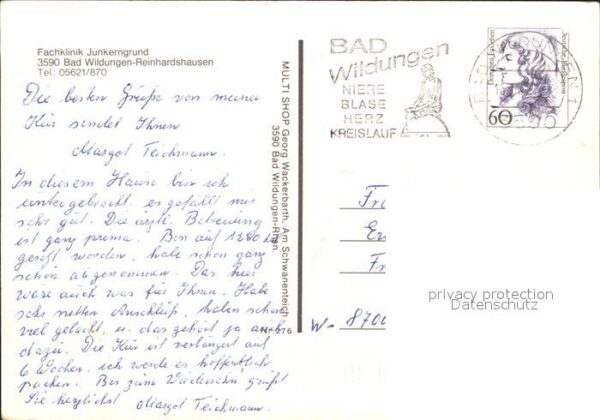 Fachklinik Junkerngrund
3590 Bad Wildungen-Reinhardshausen
Tel.: 05621/870
Die besten Grüße von meiner
Kur sendet Ihnen
Margot Teichmann.
In diesem Hause bin ich
untergebracht, es gefällt mir
sehr gut. Die ärztl. Betreuung
ist ganz prima. Bin auf 1200
gesetzt worden, habe schon ganz
schön abgenommen. Das hier
wäre auch was für Ihnen. Habe
sehr netten Anschluß, haben schon
viel gelacht, u. das gehört ja auch
dazu. Die Kur ist verlängert auf
6 Wochen, ich werde es hoffentlich
packen. Bis zum Wiedersehn grüßt
Sie herzlichst Margot Teichmann.
MULTI SHOP Georg Wackerbarth, Am Schwanenteich
3590 Bad Wildungen-Rhsn.
Nr. 276
BAD
Wildungen
NIERE
BLASE
HERZ
KREISLAUF
60
Fr
Er
Fr
W- 8700
privacy protection
Datenschutz